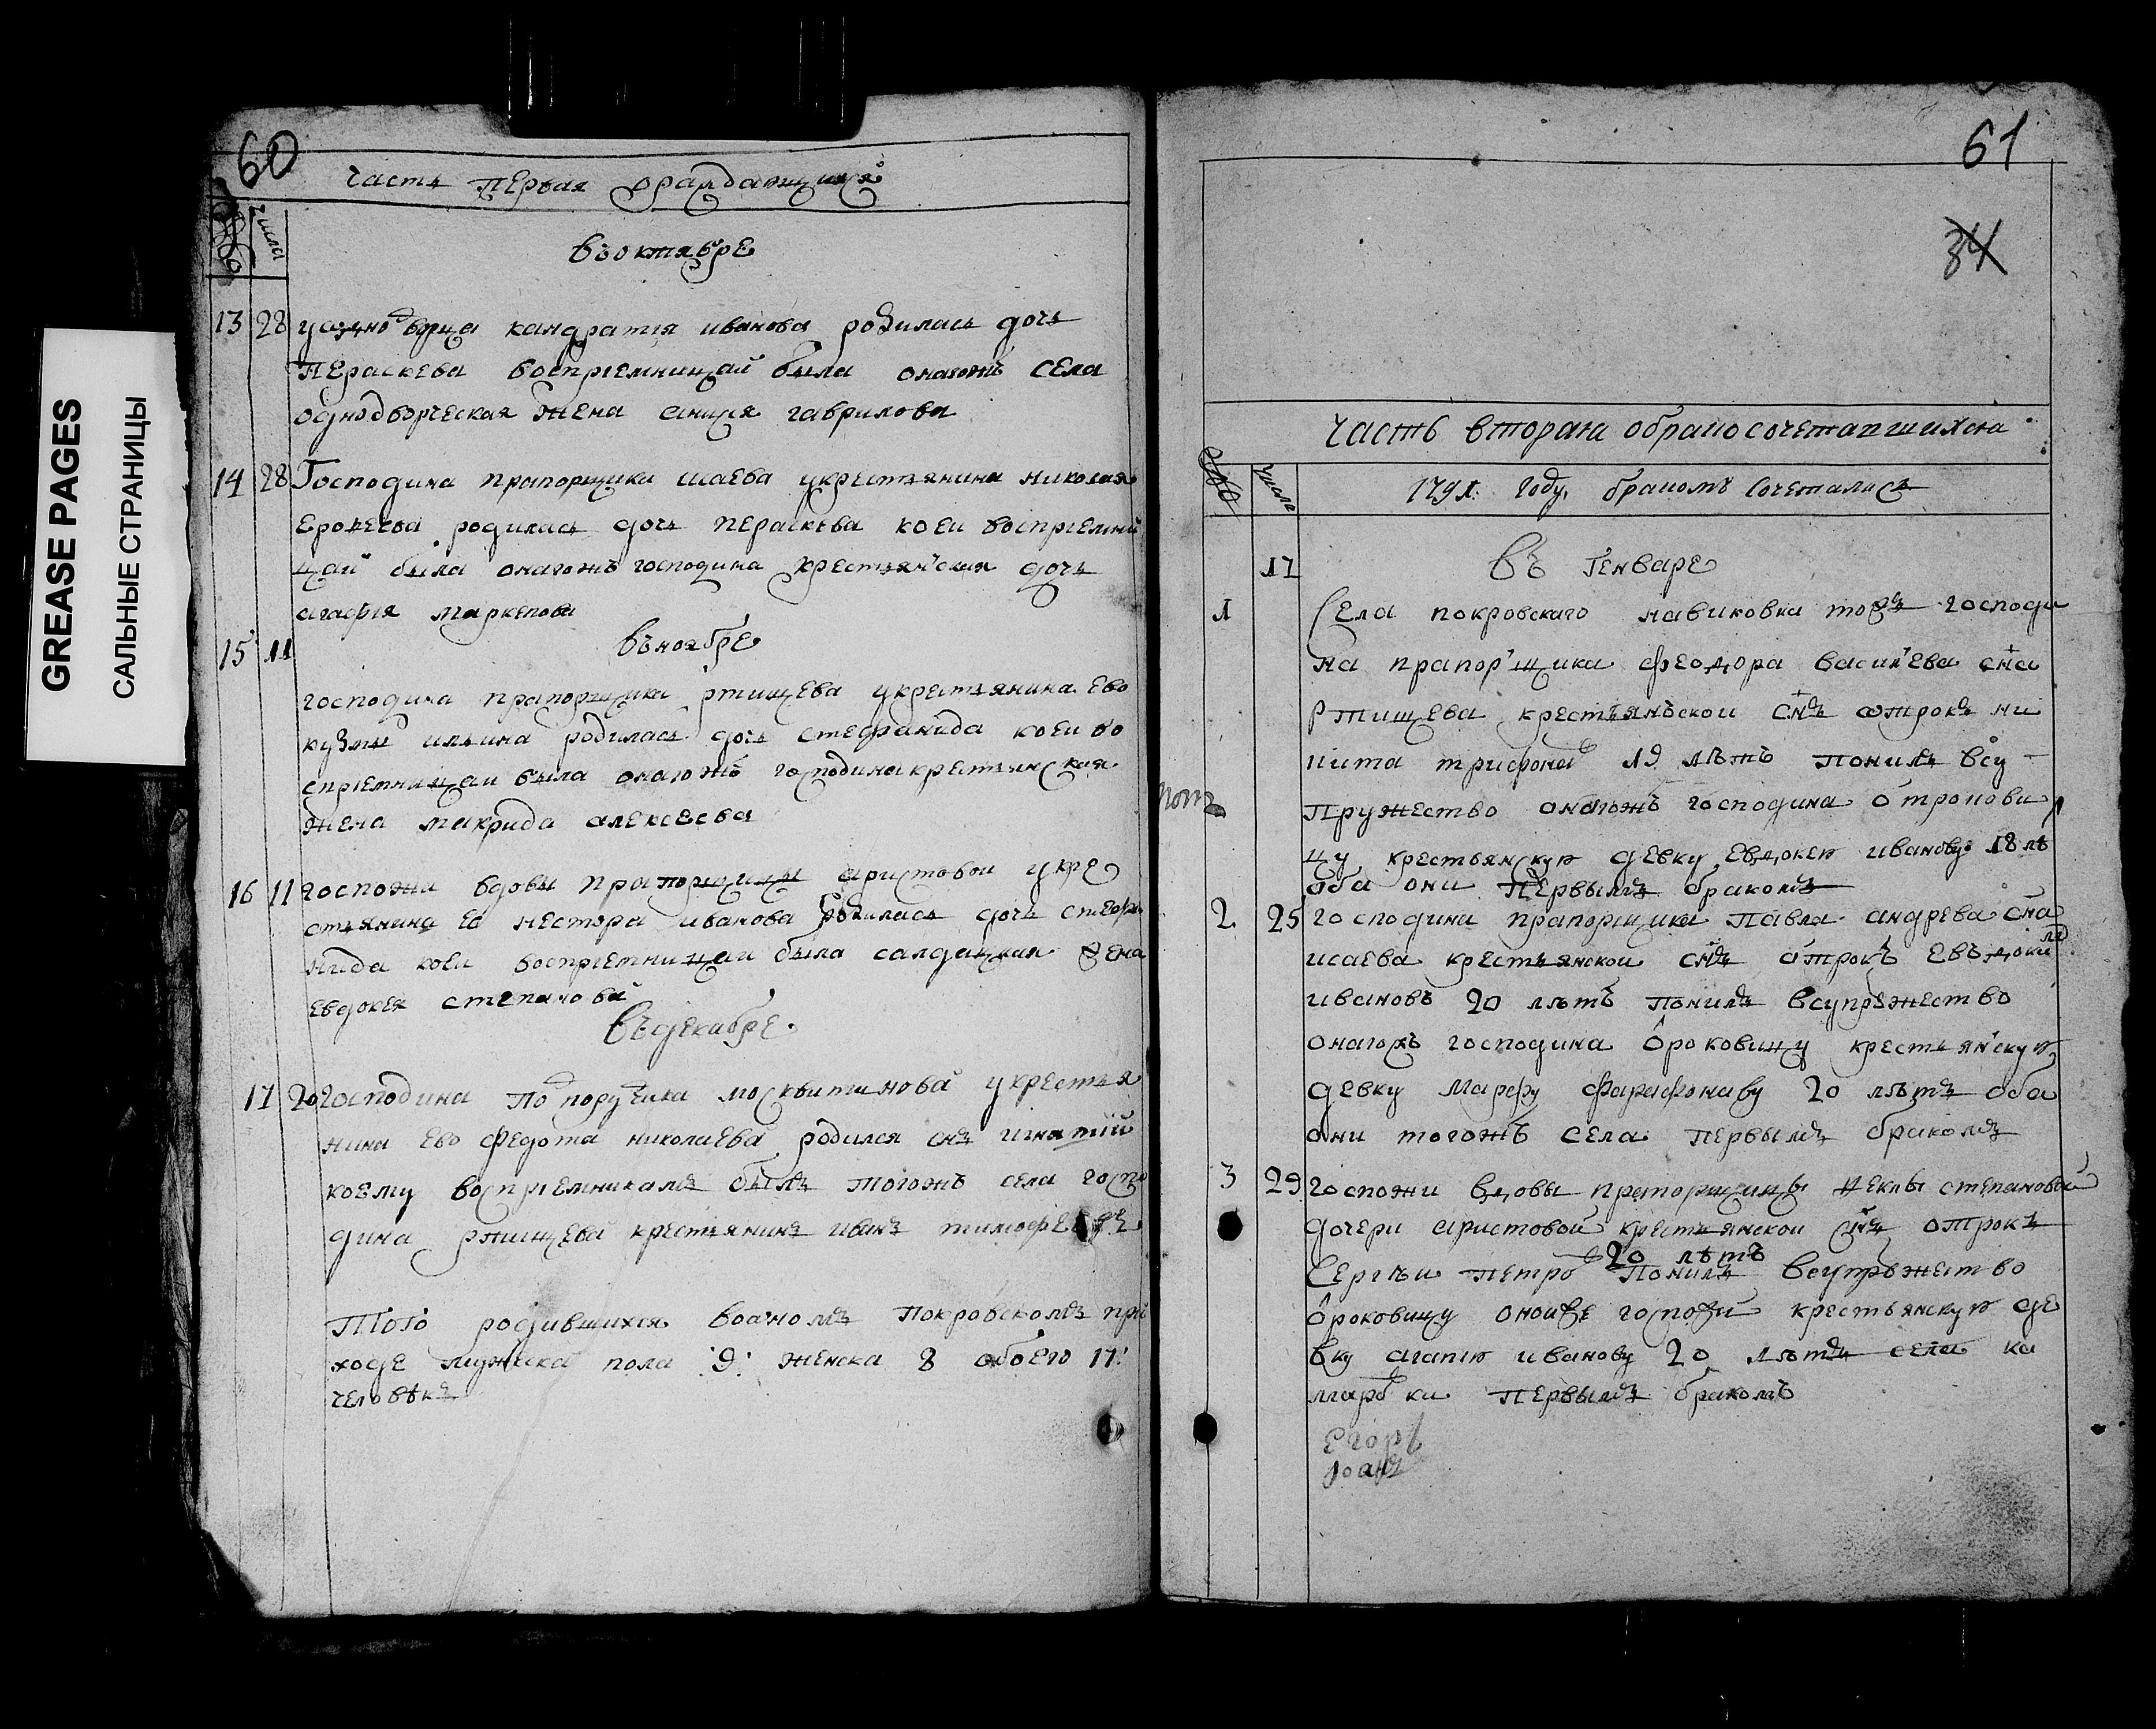 GREASE PAGES
САЛЬНЫЕ СТРАНИЦЫ
60
часть первая ораждающихся
число
въ октябре
13 28 у однодворца кандратия иванова родилась дочь
Параскева воспріемницай была онагожъ села
однодворческая жена анисія гаврилова
14 28 Господина прапорщика исаева у крестьянина николая
ерофеева родилась дочь пераскева коеи воспріемни
цай была онагожъ господина крестьянская дочь
агафія маркелова
15 11 въ ноябре
господина прапорщика ртищева укрестьянина ево
кузмы ильина родилась дочь стефанида коеи во
спріемницаи была онагожъ господина крестьянская
жена макрида алексеева
16 11 госпожи вдовы прапорщицы аристовои укре
стьянина ея нестора иванова родилась дочь стефа
нида коеи воспріемницаи была салдацкая жена
евдокея степановай
въ декабре
17 20 господина подпоручика москвитинова укрестья
нина ево федота николаева родился снъ игнатий
коему воспріемникамъ былъ тогожъ села госпо
дина ртищева крестьянинъ иванъ тимофеевъ
Того родившихся воаномъ покровскомъ при
ходе мужеска пола 9: женска 8 обоего 17:
человѣкъ
61
34
часть вторая обракосочетавшихся
число
1791: году, бракомъ сочетались
17 въ генваре
1 Села покровскаго навиковка тожъ господи
на прапорщика феодора васильева сна
Ртищева крестьянъскои снъ отрокъ ни
кита трифонов 19 лѣтъ понилъ всу
пружество онагожъ господина отрокови
цу крестьянскую девку евдокею иванову 18 лѣ
оба они первымъ бракомъ
2 25 господина прапорщика павла андрева сна
исаева крестьянскои снъ отрокъ евъдоким
ивановъ 20 лѣтъ понилъ всупрѣжество
онагожъ господина ѻроковицу крестьянскую
девку марфу фарафонаву 20 лѣтъ оба
они тогожъ села первымъ бракомъ
3 29 госпожи вдовы прапорщицы феклы степановой
дочери аристовой крестьянской снъ отрокъ
20 лѣтъ
Сергѣи петров понилъ всупрѣжество
ѻроковицу оноиже госпожи крестьянскую де
вку агапию иванову 20 лѣтъ села ка
маровки первымъ бракомъ
Егоръ